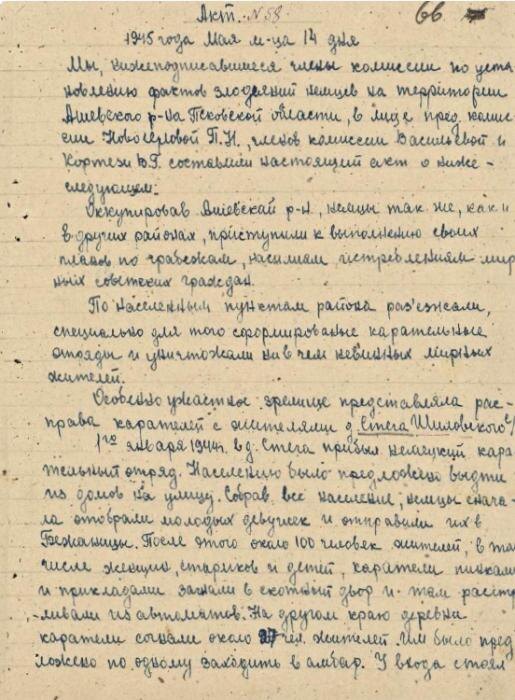 Акт. № 58. 66
1945 года Мая м-ца 14 дня
Мы, нижеподписавшиеся члены комиссии по уста
новлению фактов злодеяний немцев на территории
Ашевского р-на Псковской области, в лице пред. комис
сии Новоселовой П.Н., членов комиссии Васильевой и
Кортези В.Г. составили настоящий акт о ниже-
следующем:
Оккупировав Ашевский р-н, немцы так же, как и
в других районах, приступили к выполнению своих
планов по грабежам, насилиям, истреблениям мир
ных советских граждан.
По населенным пунктам района раз'езжали,
специально для того сформированные карательные
отряды и уничтожали ни в чем невинных мирных
жителей.
Особенно ужастное зрелище представляла рас-
права карателей с жителями д. Стега Шиловского с/
1го января 1944г. в д. Стега прибыл немецкий кара
тельный отряд. Населению было предложено выдти
из домов на улицу. Собрав всё население, немцы снача-
ла отобрали молодых девушек и отправили их в
Бежаницы. После этого около 100 человек жителей, в том
числе женщин, стариков и детей, каратели пинками
и прикладами загнали в скотный двор и там расстре
ливали из автоматов. На другом краю деревни
каратели согнали около чел. жителей. Им было пред
ложено по одному заходить в амбар. У входа стоял